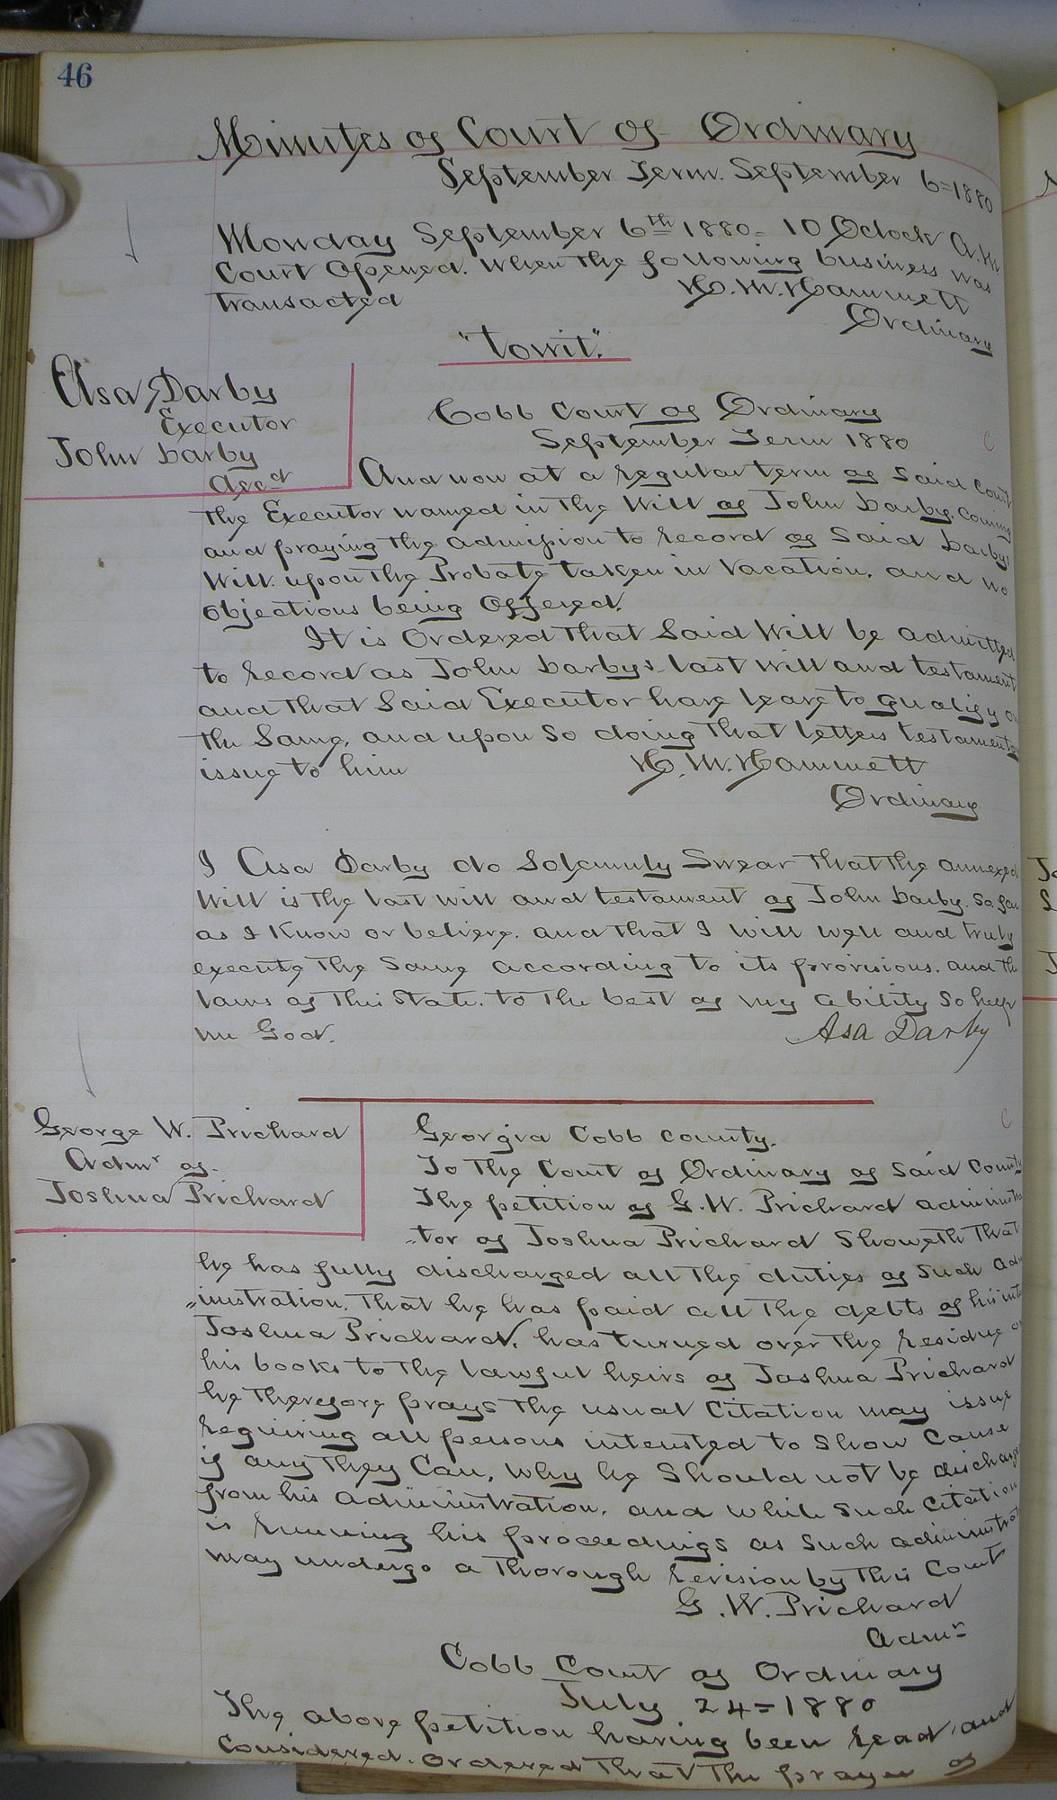 46
Minutes of Court of Ordinary
September Term. September 6=1880
Monday September 6th 1880= 10 Oclock A.M
Court Opened. When the following business was
transacted H. M. Hammett
Ordinary
"towit."
Asa Darby
Executor
John Darby
decd
Cobb Court of Ordinary
September Term 1880
And now at a regular term of said Court
the Executor named in the Will of John Darby coming
and praying the admission to record of Said Darbys
Will upon the Probate taken in Vacation, and no
objections being Offered.
It is Ordered that Said Will be admitted
to record as John Darbys last Will and testament
and that Said Executor have leave to qualify on
the Same, and upon So doing that letters testamenty
issue to him H. M. Hammett
Ordinary
I Asa Darby do Solemnly Swear that the annexed
Will is the last will and testament of John Darby. So far
as I Know or believe. and that I will well and truly
execute the Same according to its provisions. and the
laws of this State. to the best of my ability So help
me God. Asa Darby
George W. Prichard
Admr of
Joshua Prichard
Georgia Cobb County.
To the Court of Ordinary of Said County
The petition of G. W. Prichard administra
"tor of Joshua Prichard Showeth that
he has fully discharged all the duties of Such adm
"inistration. that he has paid all the debts of his
Joshua Prichard, has turned over the residue of
his books to the lawful heirs of Joshua Prichard
he therefore prays the usual Citation may issue
requiring all persons intersted to Show Cause
if any they Can, Why he Should not be discharged
from his administration. and while Such Citation
is running his proceedings as Such administrator
may undergo a thorough revision by this Court
G. W. Prichard
Admr
Cobb Court of Ordinary
July 24=1880
The above petition having been read and
Considered. Ordered that the prayer of